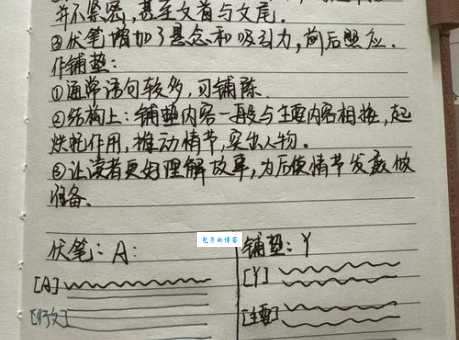 并不紧密，甚至文首与文尾。
③伏笔增加了悬念和吸引力，前后照应。
作铺垫：
①通常语句较多，可铺陈.
②结构上：铺垫内容一般与主要内容相接，起
烘托作用，推动情节，突出人物。
③让读者更好理解故事，为后续情节发展做
准备。
伏笔：A：
铺垫：Y
[A]
[Y]
[下文]
[主要]